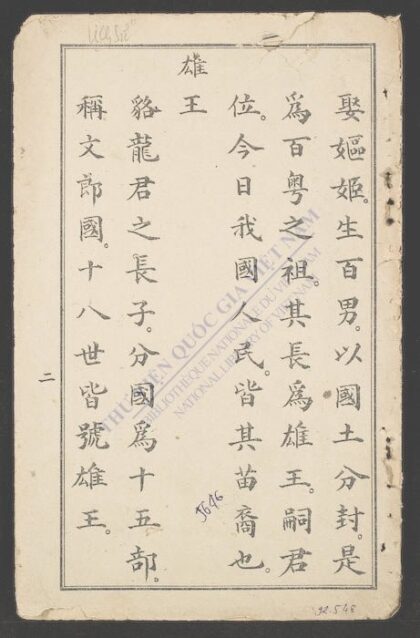 娶嫗姬。生百男。以國土分封。是
爲百粤之祖。其長爲雄王。嗣君
位。今日我國人民。皆其苗裔也。
雄王
貉龍君之長子。分國爲十五部。
稱文郎國。十八世皆號雄王。
二
THƯ VIỆN QUỐC GIA VIỆT NAM
BIBLIOTHÈQUE NATIONALE DU VIETNAM
NATIONAL LIBRARY OF VIETNAM
5646